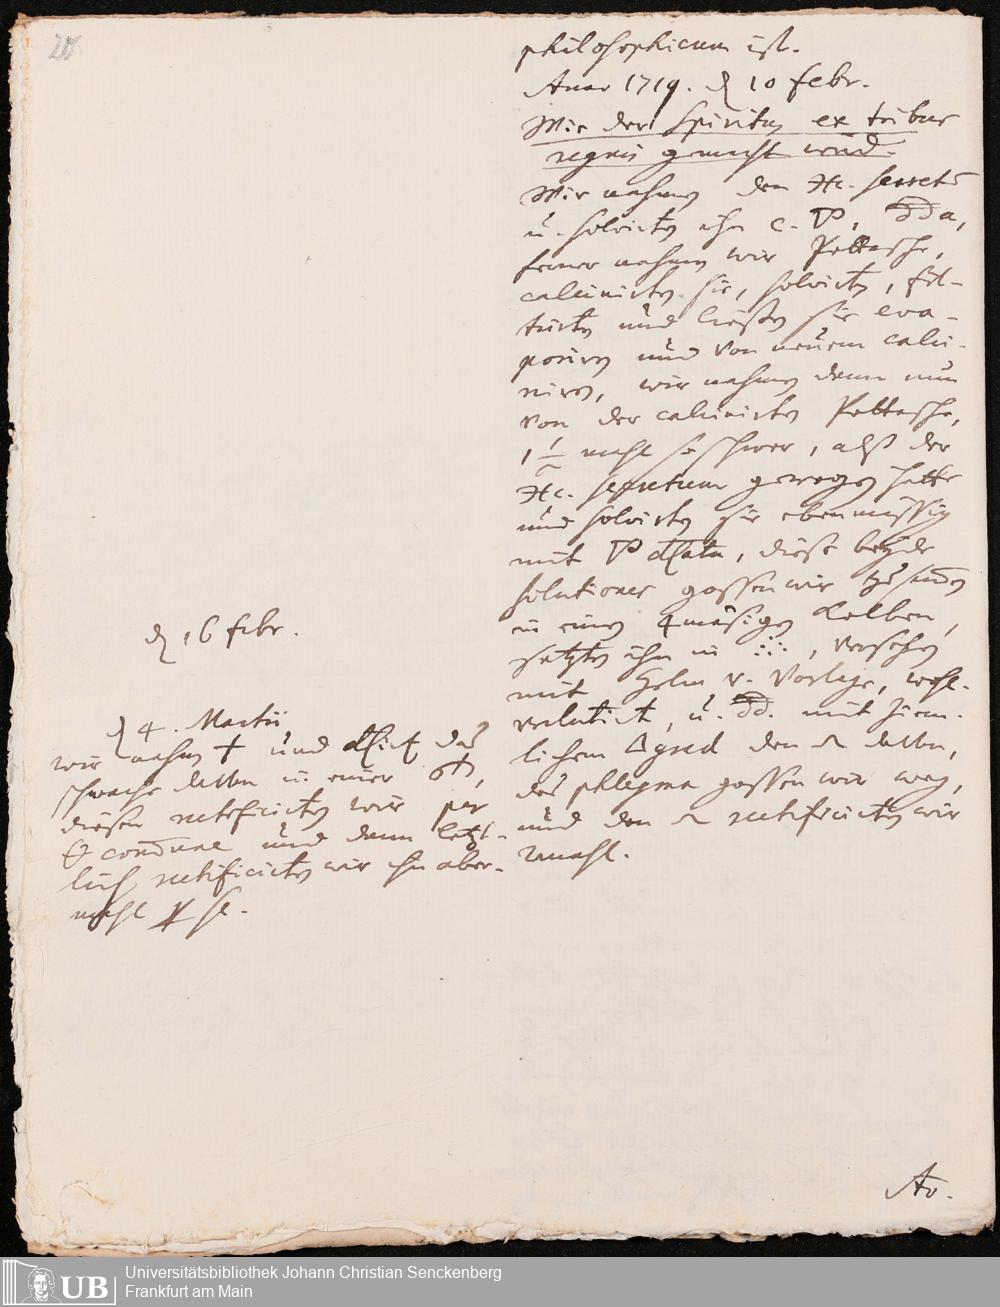 philosophicum ist.
Anno 1719. d 10 Febr.
Wie der Spiritus ex tribus
regnis gemacht wird.
Wir nahmen den secret
u. solvirten ihn c.
ferner nahmen wir Pottasche,
calcinirten sie, solvirten, fil-
trirten und ließen sie eva-
poriren und von neuem calci-
niren, wir nahmen dann nun
von der calcinirten Pottasche,
mahl so schwer, alß der
secretum gewogen hatte
und solvirten sie ebenmässig
mit, diese beyde
solutiones gossen wir zusammen
in einen mäsigen Kolben,
setzten ihn in, versehen
mit Helm v. Vorlage, wohl-
verlutirt, u. mit ziem-
lichem grad den
das phlegma gossen wir weg,
und den rectificirten wir
2mahl.
d 16 Febr.
d 4. Martii
wir nahmen und das
schwache in einer
diesen rectificirten wir per
und dann letzt-
lich rectificirten wir ihn aber-
mahl
UB
Universitätsbibliothek Johann Christian Senckenberg
Frankfurt am Main